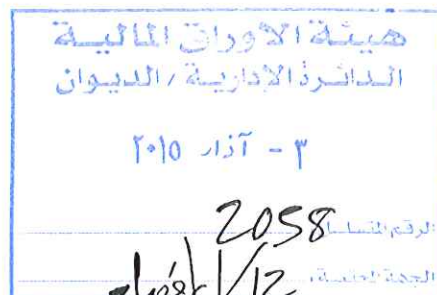 هيئة الاوراق المالية
الدائرة الإدارية / الديوان
٣ - آذار ٢٠١٥
الرقم المتسلسل 2058
الجهة المختصة، 12/